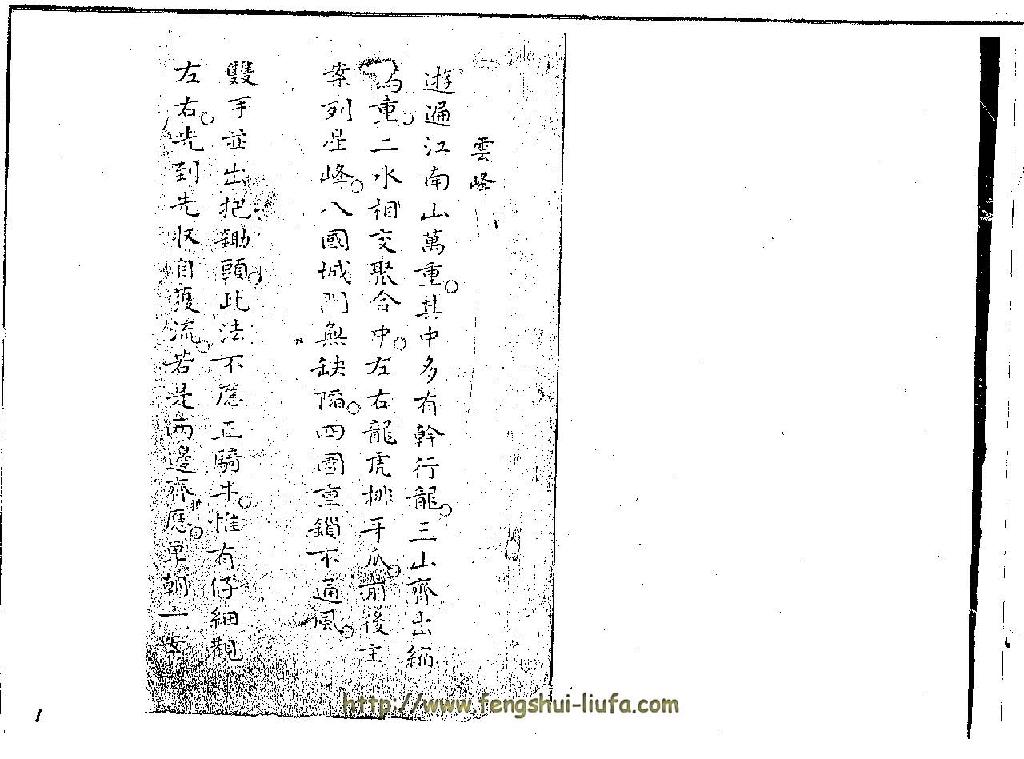 雲峰
遊遍江南山萬重。其中多有幹行龍。三山齊出
為重。二水相交聚合中。左右龍虎排牙爪。前後主
案列星峰。八國城門無缺陷。四圍重鎖不通風。
雙手並出把鋤頭。此法不應正騎牛。惟有仔細觀
左右。先到先收自獲流。若是兩邊齊應。單朝一案
http://www.fengshui-liufa.com
1